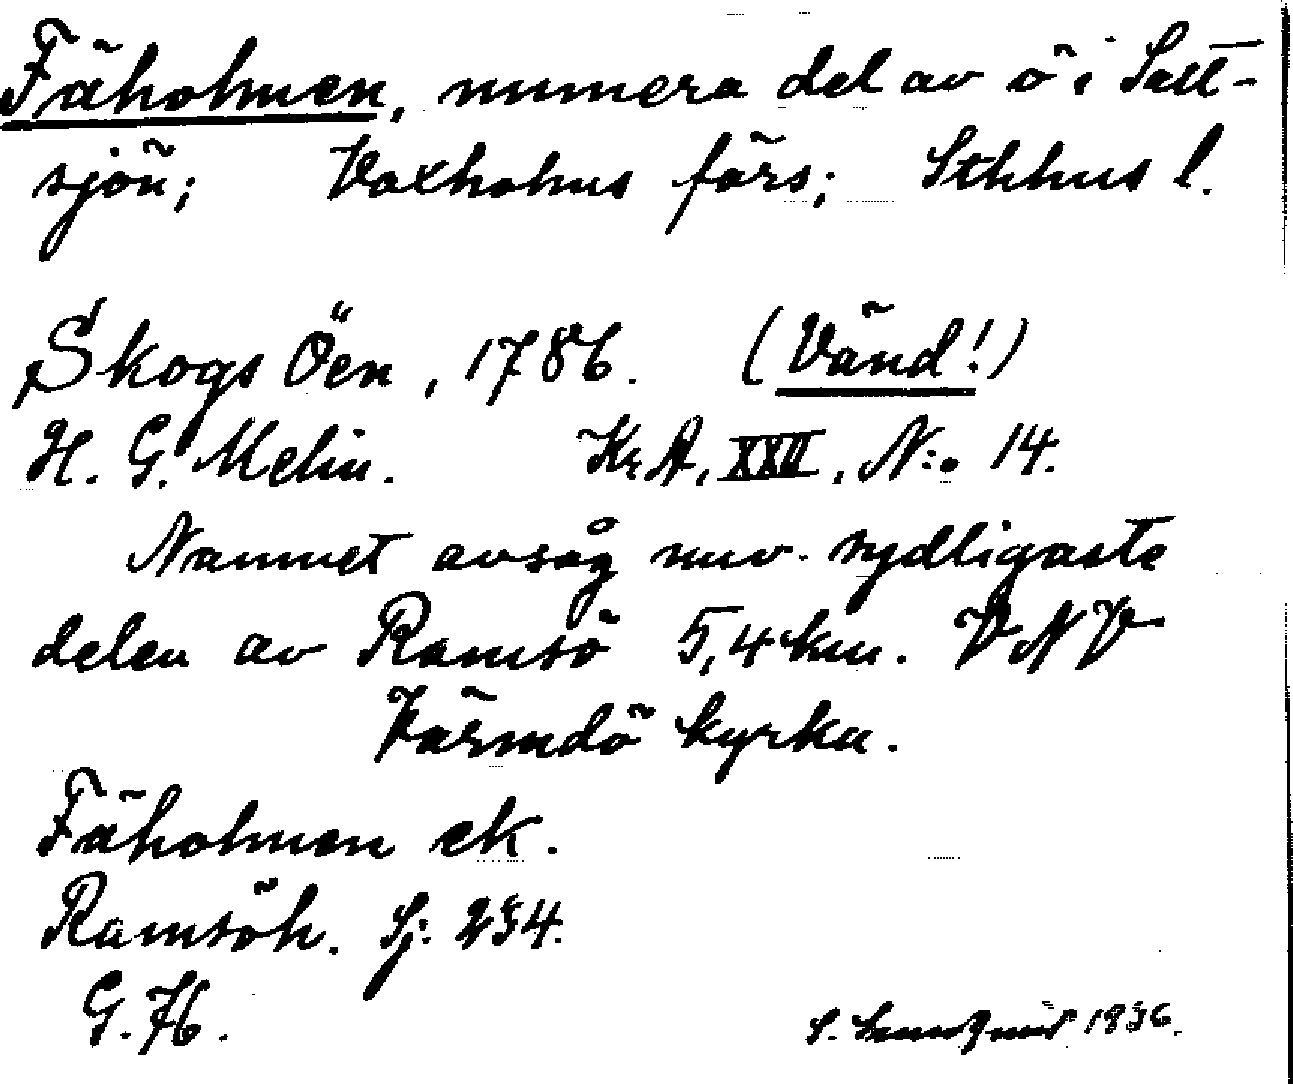 Fäholmen, numera del av ö i Salt-
sjön; Vaxholms förs; Sthlms l.
Skogs Öen, 1786. (Vänd!)
H. G. Melin. Kr A, XXII, N:o 14.
Namnet avsåg nuv. sydligaste
delen av Ramsö 5,4 km. VNV
Värmdö kyrka.
Fäholmen ek.
Ramsöh. Sj. 234.
G. 76.
S. 1936.